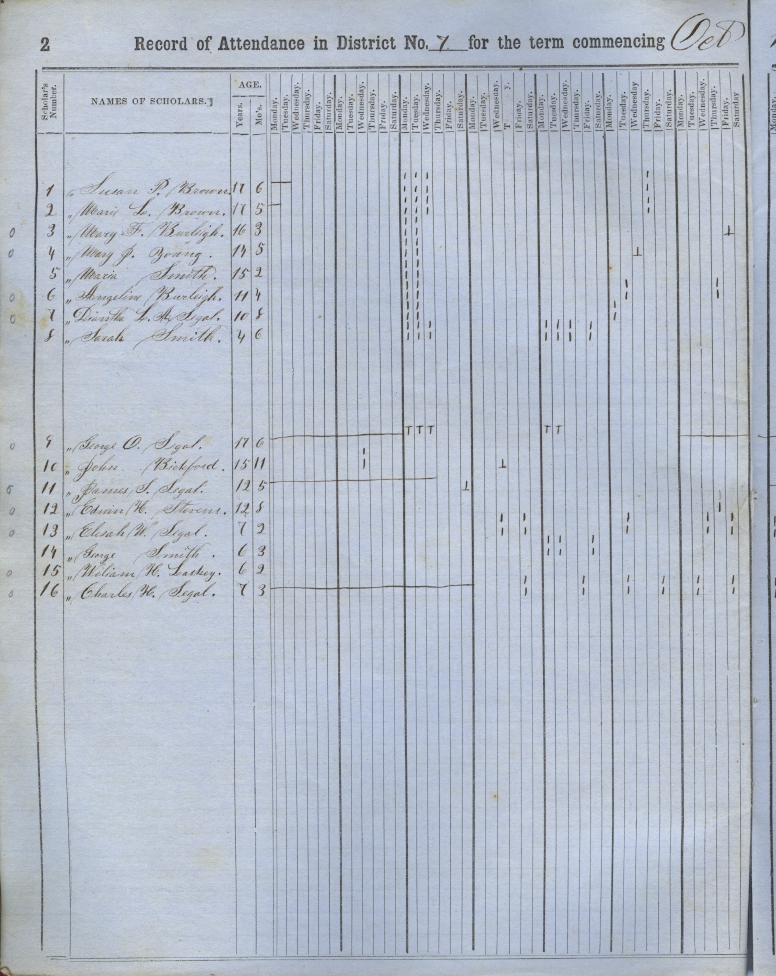 2 Record of Attendance in District No. 7 for the term commencing Oct
Scholar's Number. NAMES OF SCHOLARS. AGE. Years. Mo's. Monday. Tuesday. Wednesday. Thursday. Friday. Saturday. Monday. Tuesday. Wednesday. Thursday. Friday. Saturday. Monday. Tuesday. Wednesday. Thursday. Friday. Saturday. Monday. Tuesday. Wednesday. T y. Friday. Saturday. Monday. Tuesday. Wednesday. Thursday. Friday. Saturday. Monday. Tuesday. Wednesday Thursday. Friday. Saturday. Monday. Tuesday. Wednesday. Thursday. Friday. Saturday
1 " Susan P. Brown. 17 6
2 " Marie L. Brown. 17 5
3 " Mary F. Burleigh. 16 3
4 " Mary J. Young. 14 5
5 " Maria Smith. 15 2
6 " Angeline Burleigh. 11 4
7 " L. A. Segal. 10 8
8 " Sarah Smith. 4 6
9 " George O. Segal. 17 6
10 " John Bickford. 15 11
11 " James S. Segal. 12 5
12 " Edwin H. Stevens. 12 8
13 " Elisah W. Segal. 7 2
14 " George Smith. 6 3
15 " William H. Laskey. 6 2
16 " Charles H. Segal. 7 3